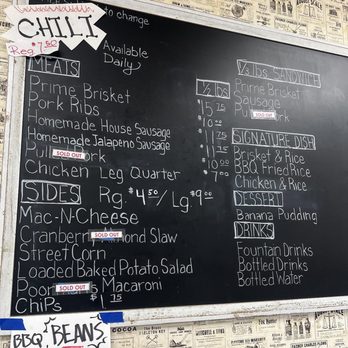 CHILI
Reg $7.50
to change
Available
Daily
MEATS
1/2 lbs
Prime Brisket
15.75
Pork Ribs
10.00
Homemade House Sausage
Homemade Jalapeno Sausage
11.75
Pull Pork
SOLD OUT
10.00
Chicken Leg Quarter
$7.00
SIDES Rg. $4.50 / Lg $9.00
Mac-N-Cheese
Cranberry Almond Slaw
SOLD OUT
Street Corn
Loaded Baked Potato Salad
Poor Macaroni
SOLD OUT
Chips $1.75
BBQ BEANS
1/3 lbs. SANDWICH
Prime Brisket
Sausage
Pull Pork
SOLD OUT
SIGNATURE DISH
Brisket & Rice
BBQ Fried Rice
Chicken & Rice
DESSERT
Banana Pudding
DRINKS
Fountain Drinks
Bottled Drinks
Bottled Water
COCOA